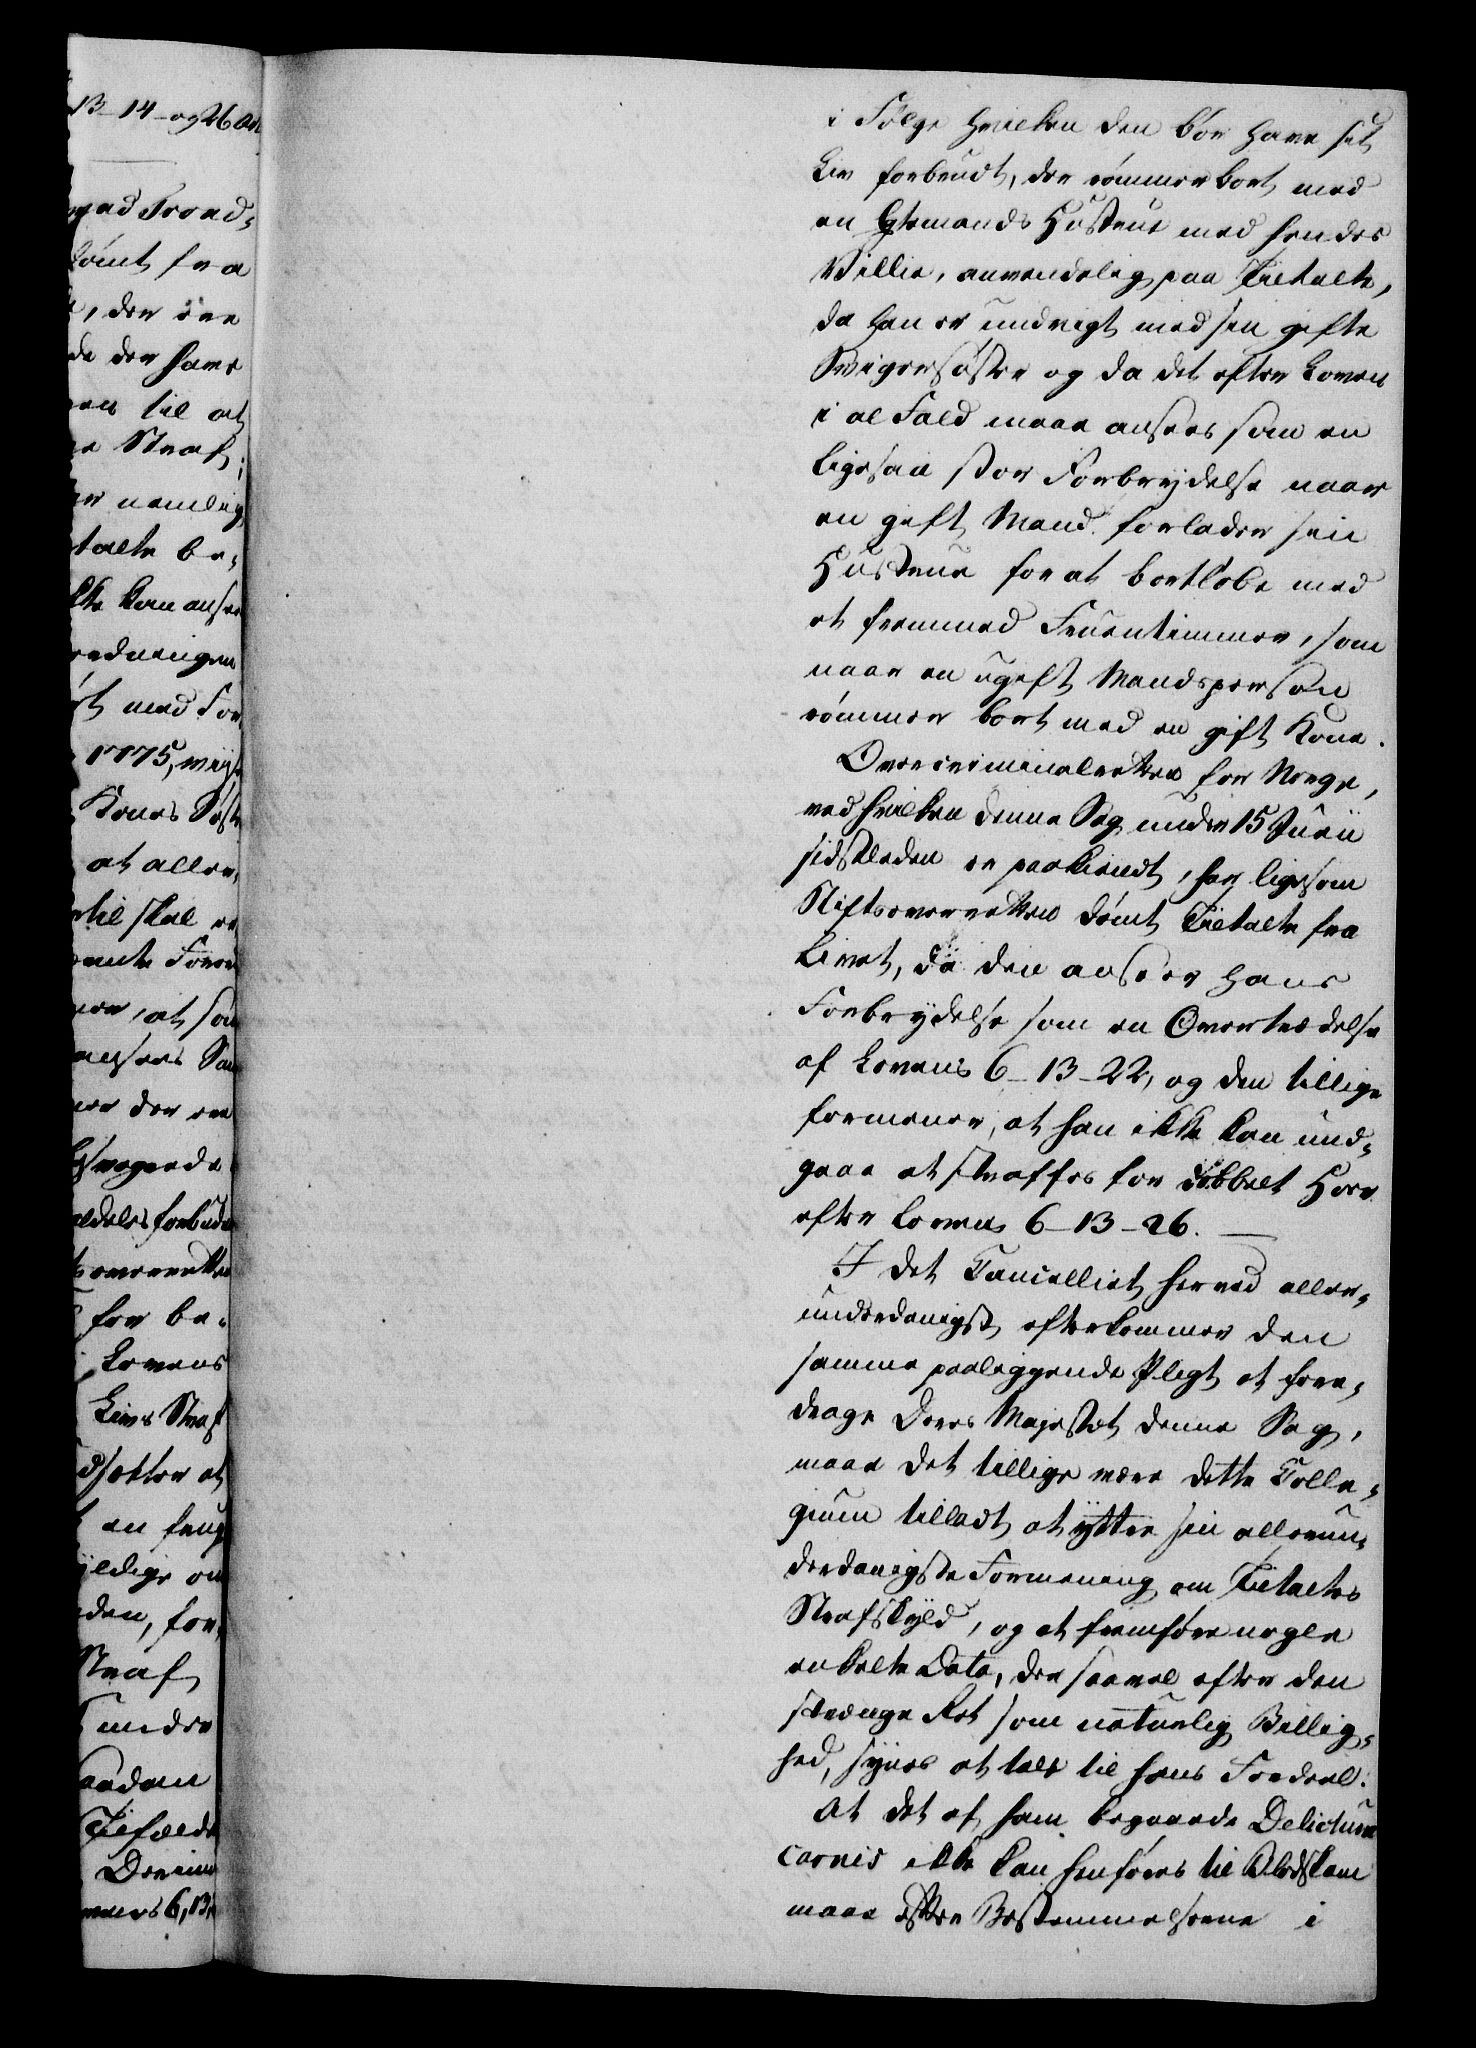 13-14- og 26 Art
mad Trond-
dömt fra
, der ere
de der have
en til at
e Straf;
er nemlig
talte be-
ikke kan anse
redningen
t med For
1775, wiis
Kones Søst
at aller-
til skal
Foror
, at saa
ansees
der en
besvogrede
aldeles forbude
overretten
for be-
Lovens
Livs Straf
dsætter at
en
yldige
den, for
Straf
under
aadan
Tilfælde
Lovens 6, 13,
i Følge hvilken den bör have sit
Liv forbrudt, der römmer bort med
en Ægtemands Hustrue med hendes
Villie, anvendelig paa Tiltalte,
da han er undvigt med sin gifte
Svigersöster og da det efter Loven
i al Fald maae ansees som en
ligesaa stor Forbrydelse naar
en gift Mand forlader sin
Hustrue for at bortlöbe med
et fremmed Fruentimmer, som
naar en ugift Mandsperson
römmer bort med en gift Kone.
Overcriminalretten for Norge,
ved hvilken denne Sag under 15 Junii
sidstleden er paakiendt, har ligesom
Stiftsoverretten dömt Tiltalte fra
Livet, da den anseer hans
Forbrydelse som en Overtrædelse
af Lovens 6-13-22, og den tillige
formener, at han ikke kan und-
gaae at straffes for dobbelt Hoer
efter Lovens 6-13-26.
I det Cancelliet herved aller-
underdanigst efterkommer den
samme paaliggende Pligt at fore-
drage Deres Majestæt denne Sag,
maae det tillige være dette Colle-
gium tilladt at yttre sin allerun-
derdanigste Formening om Tiltaltes
Strafskyld, og at fremföre nogle
enkelte Data, der saavel efter den
strænge Ret som naturlig Billig-
hed, synes at tale til hans Fordeel.
At det af ham begaaede Delictum
carnis ikke kan henföres til Blodskam
maae efter Bestemmelserne i